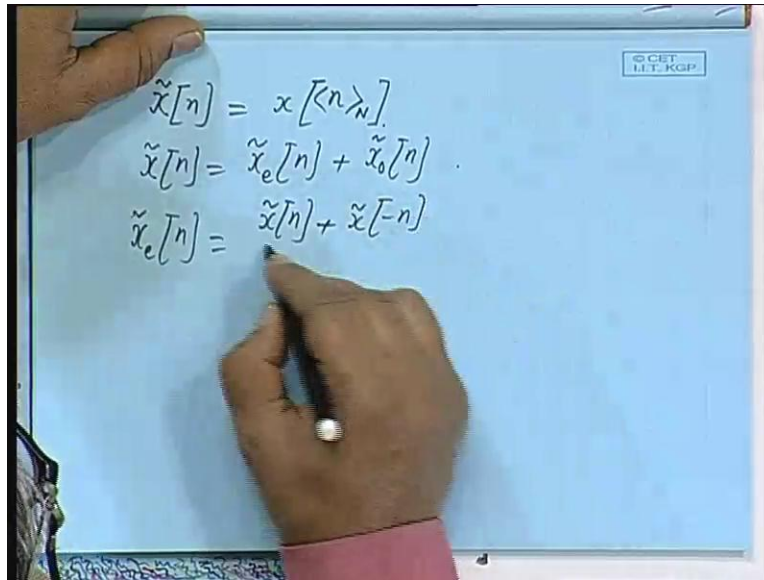 © CET
I.I.T. KGP
x̃[n] = x[<n>_N].
x̃[n] = x̃_e[n] + x̃_o[n].
x̃_e[n] = x̃[n] + x̃[-n]